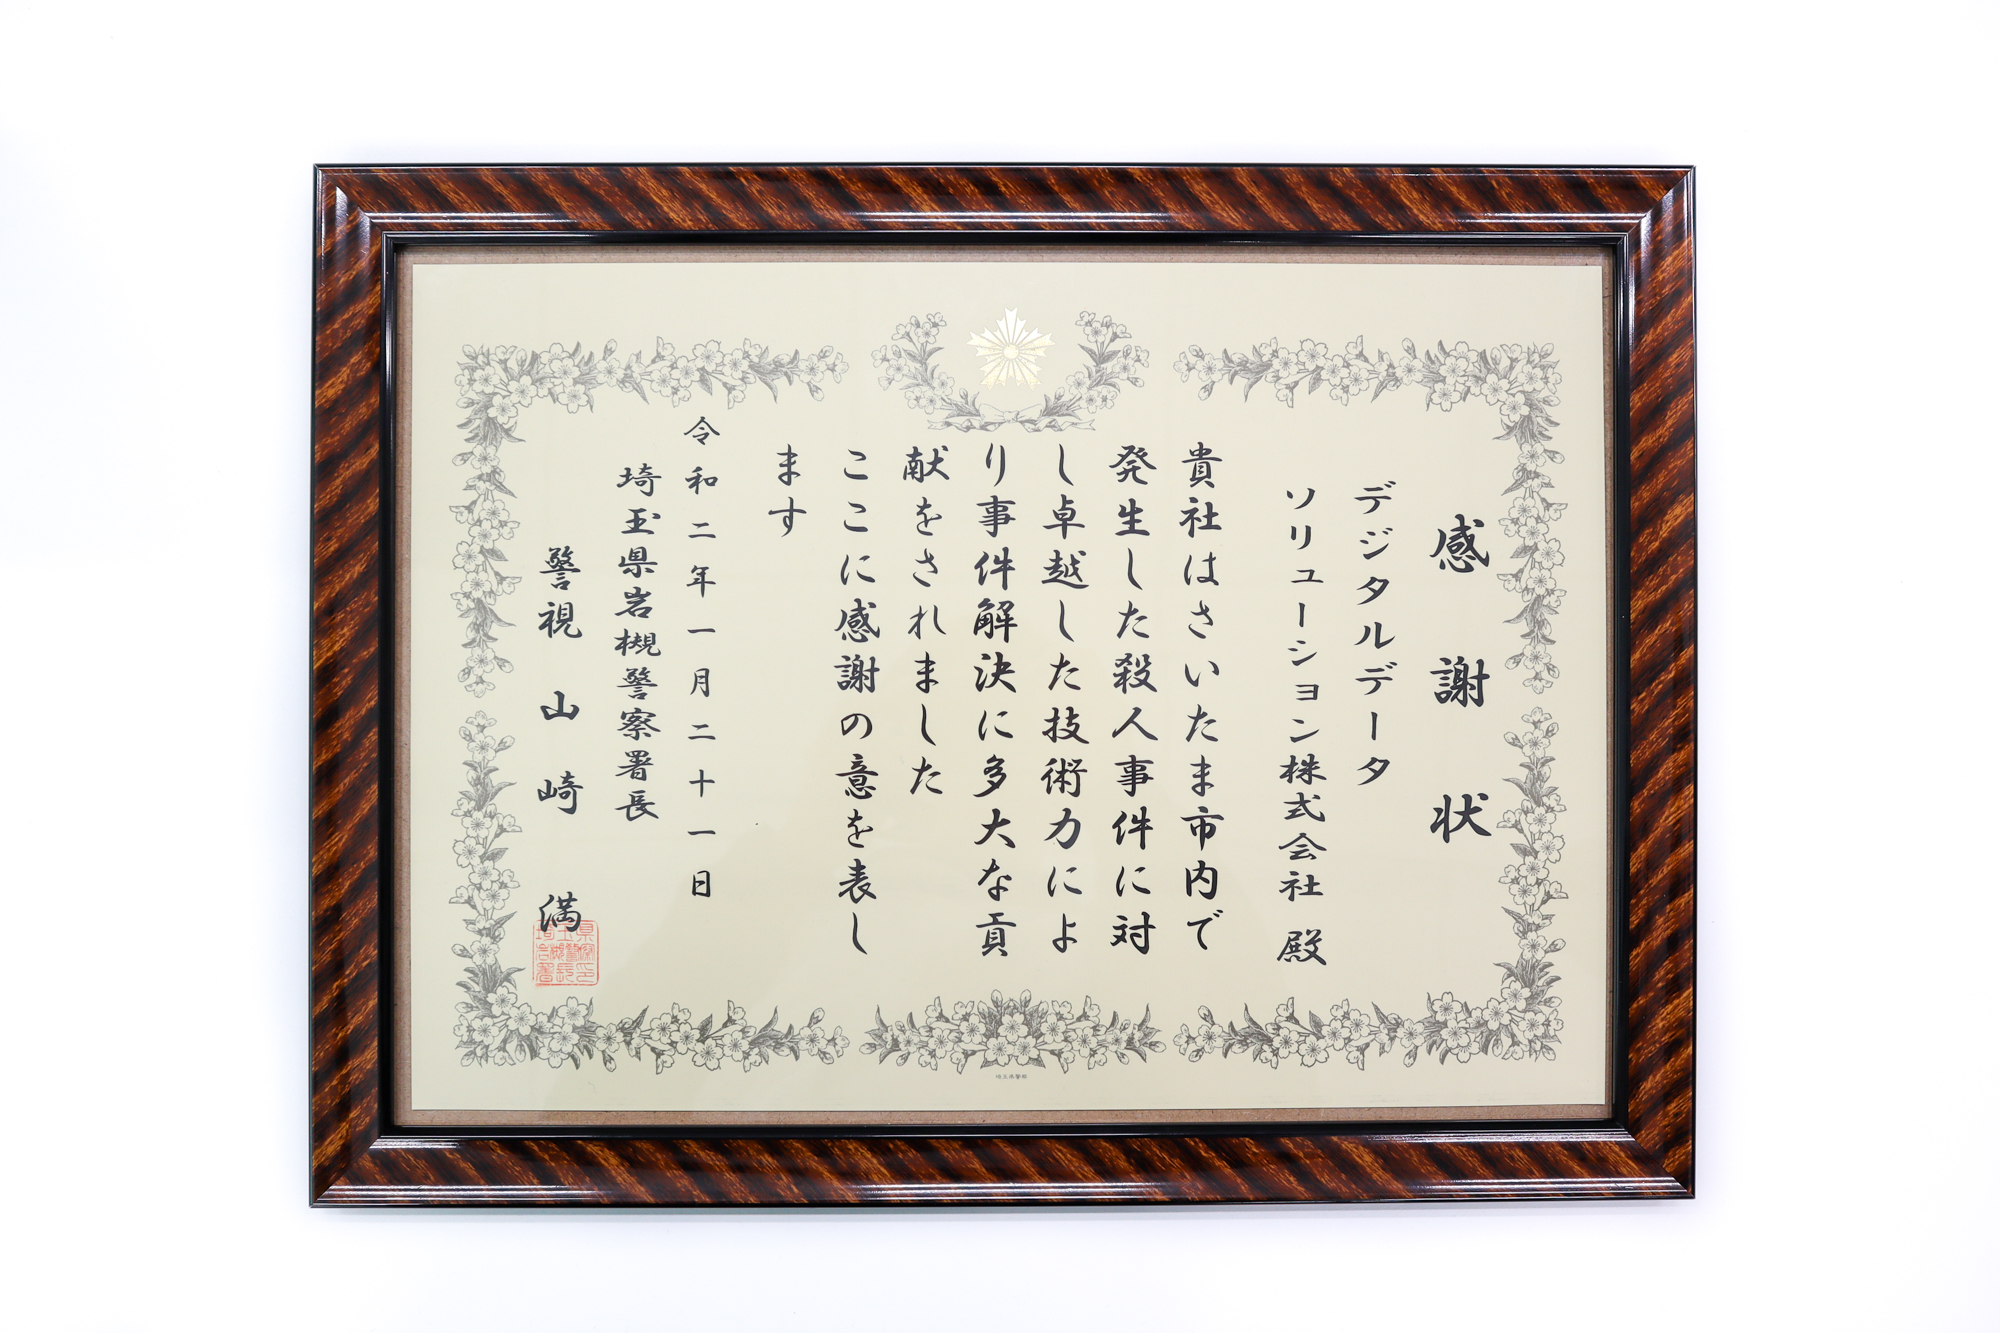 感謝状
デジタルデータ
ソリューション株式会社 殿
貴社はさいたま市内で
発生した殺人事件に対
し卓越した技術力によ
り事件解決に多大な貢
献をされました
ここに感謝の意を表し
ます
令和二年一月二十一日
埼玉県岩槻警察署長
警視 山崎 満
埼玉県警察